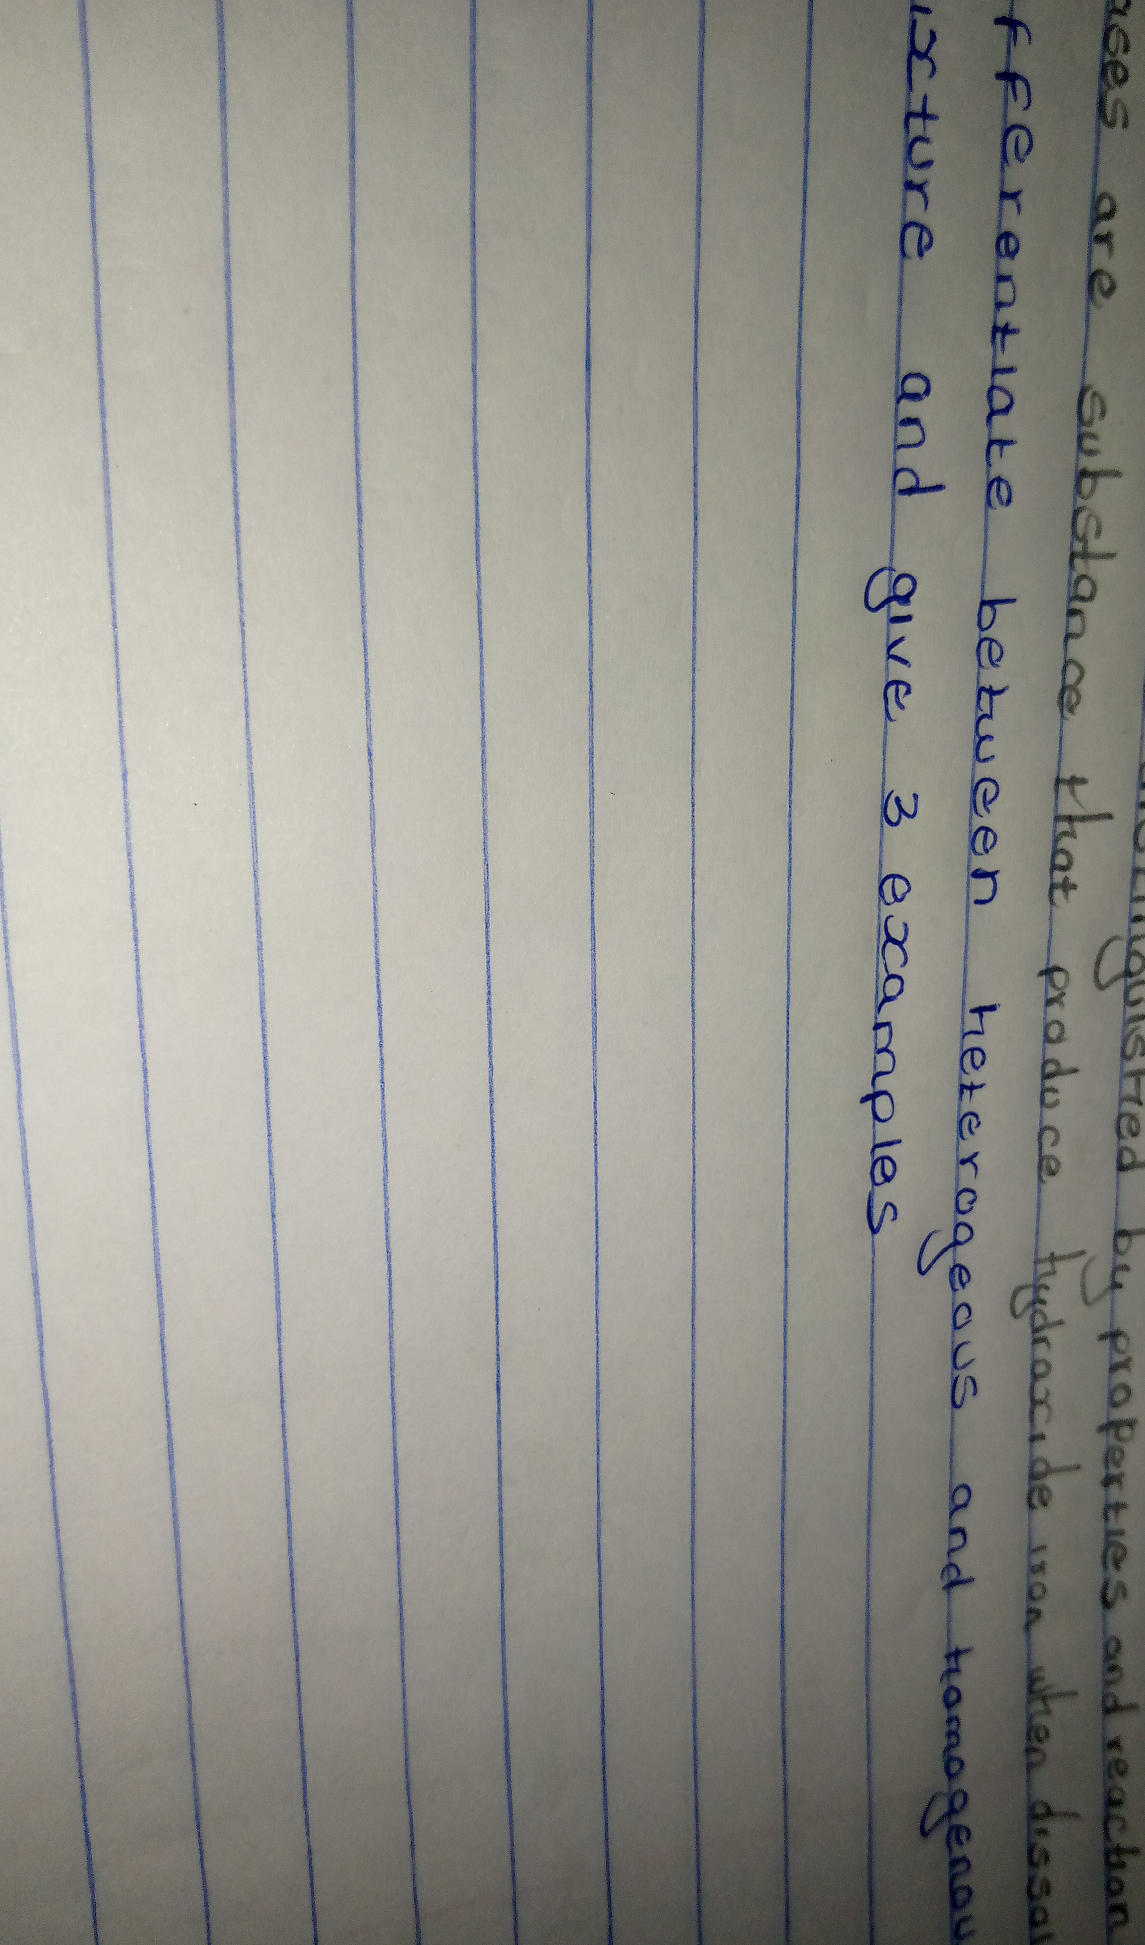 by properties and reaction
ases are substance that produce hydroxide iron when dissol
fferentiate between heterogeous and homogenou
ixture and give 3 examples